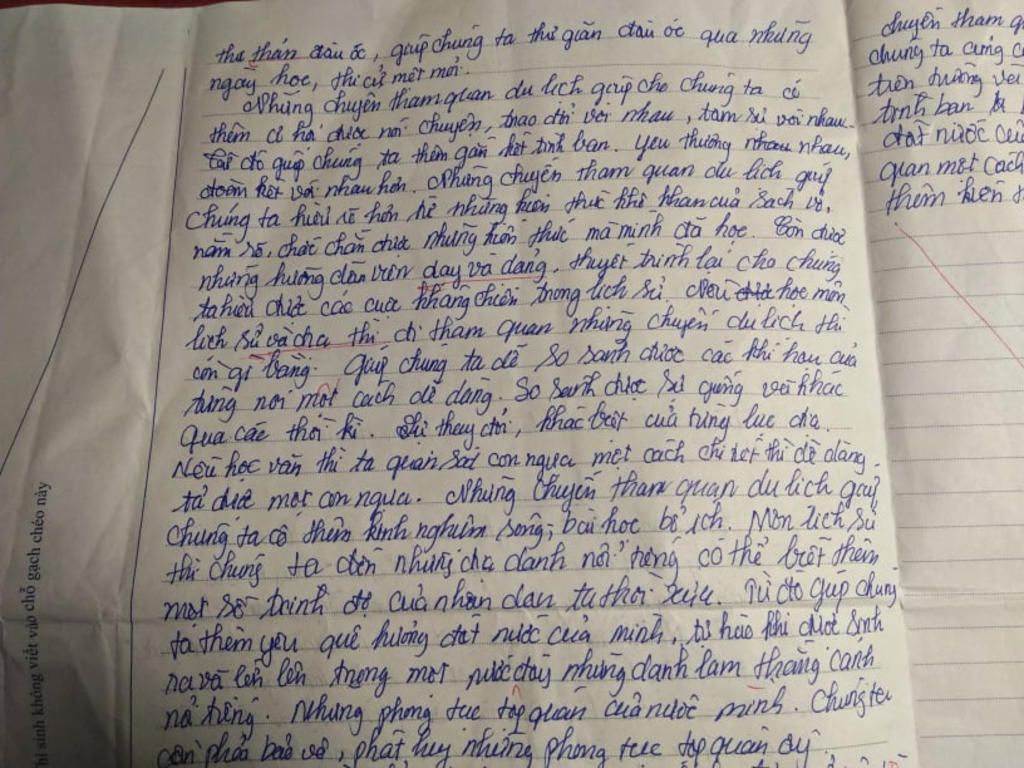 thư thán đầu óc, giúp chúng ta thư giãn đầu óc qua những
ngày học, thi cử mệt mỏi.
Những chuyến tham quan du lịch giúp cho chúng ta có
thêm cơ hội được nói chuyện, trao đổi với nhau, tâm sự với nhau.
Từ đó giúp chúng ta thêm gắn kết tình bạn. Yêu thương nhau,
đoàn kết với nhau hơn. Những chuyến tham quan du lịch giúp
chúng ta hiểu rõ hơn về những kiến thức khô khan của sách vở,
nắm rõ, chắc chắn được những kiến thức mà mình đã học. Còn được
những hướng dẫn viên dạy và dảng, thuyết trình lại cho chúng
ta hiểu được các cuộc kháng chiến trong lịch sử. Nếu học môn
lịch sử và địa thì đi tham quan những chuyến du lịch thì
còn gì bằng. Giúp chúng ta dễ so sánh được các khí hậu của
từng nơi một cách dễ dàng. So sánh được sự giống và khác
qua các thời kì. Sự thay đổi, khác biệt của từng lục địa.
Nếu học văn thì ta quan sát con ngựa một cách chi tiết thì dễ dàng
tả được một con ngựa. Những chuyến tham quan du lịch giúp
chúng ta có thêm kinh nghiệm sống, bài học bổ ích. Môn lịch sử
thì chúng ta đến những địa danh nổi tiếng có thể biết thêm
một số trình độ của nhân dân ta thời xưa. Từ đó giúp chúng
ta thêm yêu quê hương đất nước của mình, tự hào khi được sinh
ra và lớn lên trong một nước đầy những danh lam thắng cảnh
nổi tiếng. Những phong tục tập quán của nước mình. Chúng ta
cần phải bảo vệ, phát huy những phong tục tập quán ấy.
chuyến tham
chúng ta cũng
trên tường
tình bạn
đất nước
quan một cách
thêm kiến
hí sinh không viết vào chỗ gạch chéo này